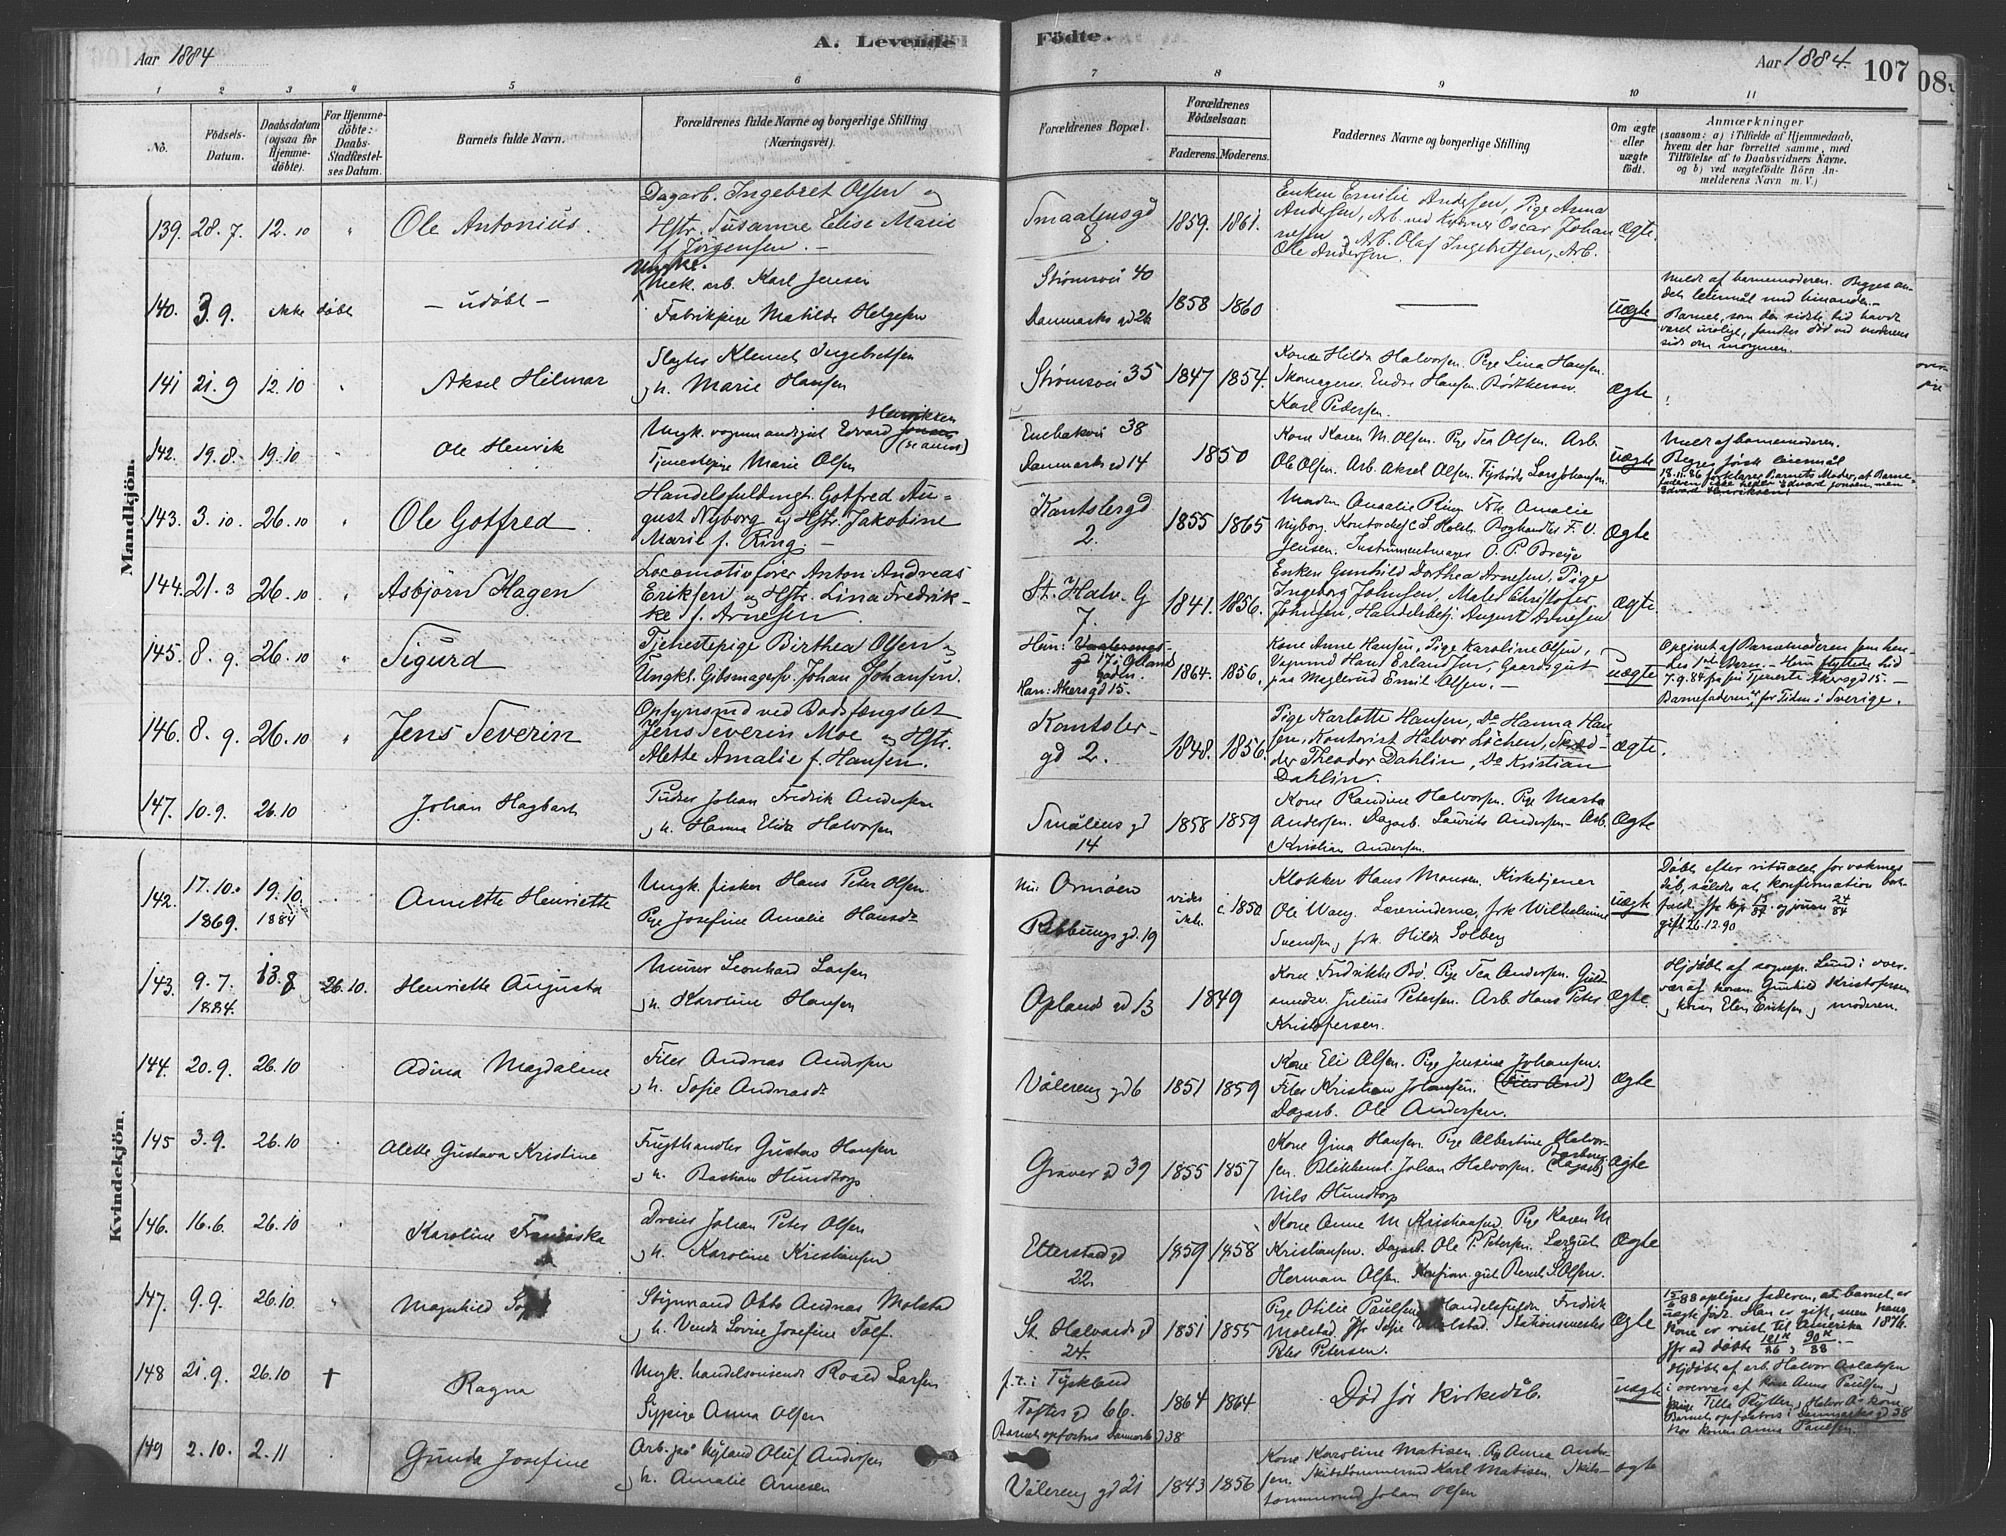 Aar 1884
A. Levende Födte.
Aar 1884. 107
1 2 3 4 5 6 7 8 9 10 11
No. Födsels-Datum. Daabsdatum (ogsaa for Hjemmedöbte). For Hjemmedöbte: Daabs-Stadfæstelses Datum. Barnets fulde Navn. Forældrenes fulde Navne og borgerlige Stilling (Næringsvei). Forældrenes Bopæl. Forældrenes Födselsaar. Faderens. Moderens. Faddernes Navne og borgerlige Stilling Om ægte eller uægte födt. Anmærkninger (saasom: a) i Tilfælde af Hjemmedaab, hvem der har forrettet samme, med Tilföielse af to Daabsvidners Navne, og b) ved uægtefödte Börn Anmelderens Navn m. V.)
Mandkjön.
139. 28. 7. 12. 10 " Ole Antonius.
Dagarb. Ingebret Olsen og
Hstr. Susanne Elise Marie
f. Jørgensen. —
Smaalensgd
8. 1859. 1861.
Enken Emilie Andersen, Pige Anna
Andersen, Arb. ved Oscar Johan
nesen, Arb. Olaf Ingebretsen, Arb.
Ole Andersen.
ægte.
140. 3. 9. ikke døbt — udøbt —
Ungk.
Mek. arb. Karl Jensen
Fabrikpige Matilde Helgesen
Strømsvei 40
Danmarks gd 26 1858 1860 —
uægte
Meldt af barnemoderen. Begges an-
det leiermål med hinanden. —
Barnet, som den sidste tid havde
været uroligt, fandtes død ved moderens
side om morgenen.
141 21. 9 12. 10 " Aksel Hilmar
Slagter Klemet Ingebretsen
og h. Marie Hansen
Strømsvei 35 1847 1854.
Kone Hilda Halvorsen. Pige Lina Hansen.
Skomagerne Endre Hansen.
Karl Pedersen.
ægte
142. 19. 8. 19. 10 Ole Henrik
Henriksen
Ungk. vognmandsgut Edvard Jonsen
(se anm.)
Tjenestepige Marie Olsen
Enebakvei 38
Danmarks gd 14 1850
Kone Karen M. Olsen. Pige Tea Olsen. Arb.
Ole Olsen. Arb. Aksel Olsen. Fyrbøder Lars Johansen.
uægte
Meldt af barnemoderen.
Begges første leiermål
18.11.86 forklarer Barnets Moder, at Barne-
faderen ikke heder Edvard Jonsen, men
Edvard Henriksen!
143. 3. 10. 26. 10 " Ole Gotfred
Handelsfuldmgt. Gotfred Au-
gust Nyborg og Hstr. Jakobine
Marie f. Ring. —
Kantslergd
2. 1855 1865
Madm Amalie Ring, Frk. Amalie
Nyborg. Kontorchef C. S. Holst. Boghandler F. V.
Jensen. Instrumentmager O. P. Breije
Ægte
144. 21. 3 26. 10 " Asbjørn Hagen
Locomotivfører Anton Andreas
Eriksen og Hstr. Lina Fredrik-
ke f. Arnesen.
St. Halv. G
7. 1841. 1856.
Enken Gunhild Dorthea Arnesen, Pige
Ingeborg Johnsen, Maler Christofer
Johnsen, Handelsbetj. August Arnesen
ægte
145. 8. 9. 26. 10 " Sigurd
Tjenestepige Birthea Olsen og
Ungkl. Gibsmagersv. Johan Johansen.
Hun: Vaalerengs-
gd 17 i Grønlands
Han: Akersgd 15. 1864. 1856.
Kone Anne Hansen, Pige Karoline Olsen,
Vognmd Hans Erlandsen, Gaardsgut
paa Maglerud Emil Olsen. —
uægte
Opgivet af Barnemoderen som hen-
des 1ste Barn. — Hun flyttede hid
7.9.84 fra sin Tjeneste Akersgd 15. —
Barnefaderen er for Tiden i Sverige.
146. 8. 9. 26. 10 " Jens Severin
Opsynsmd ved Bodsfængslet
Jens Severin Moe og Hstr.
Alette Amalie f. Hansen.
Kantsler-
gd 2. 1848. 1856.
Pige Karlotte Hansen, Do Hanna Han
sen, Kontorist Halvor Löchen, Skræd-
der Theodor Dahlin, Do Kristian
Dahlin.
ægte.
147. 10. 9. 26. 10 Johan Hagbart
Pudser Johan Fredrik Andersen
og h. Hanna Elida Halvorsen
Smålens gd
14 1858 1859
Kone Randine Halvorsen. Pige Marta
Andersen. Dagarb. Laurits Andersen. Arb.
Kristian Andersen.
Ægte
Kvindekjön.
142. 17. 10. 1869. 19. 10. 1884 Anette Henriette
Ungk. fisker Hans Peter Olsen.
Pige Josefine Amalie Hansdr
Nu: Ormøen
Ribbungs gd. 19 vides ikke c. 1850
Klokker Hans Monsen. Kirketjener
Ole Wang. Lærerinderne, frk Wilhelmine
Svendsen, frk. Hilda Solberg
uægte
Døbt efter ritualet for voksnes
dåb, således at konfirmation bort-
faldt. Jfr kpr 13/87 og journ 24/84
gift 26.12.90
143. 9. 7. 1884. 13. 8 26.10. Henriette Augusta
Murer Leonhard Larsen
og h. Karoline Hansen
Oplands gd 13 1849
Kone Fredrikke Bø. Pige Tea Andersen. Guld-
smedsv. Julius Petersen. Arb. Hans Peter
Kristofersen.
Ægte.
Hjdøbt af sognepr. Lund i over-
vær af konen Gunhild Kristofersen
og konen Elen Eriksen, moderen.
144. 20. 9. 26. 10 Adina Magdalene
Filer Andreas Andersen
og h. Sofie Andreasdr
Vålereng gd 6 1851 1859
Kone Eli Olsen. Pige Jensine Johansen.
Filer Kristian Johansen.
Dagarb. Ole Andersen.
Ægte
145 3. 9. 26. 10 Alette Gustava Kristine
Frugthandler Gustav Hansen
og h. Bastian Hundtorp
Graver gd 39 1855 1857
Kone Gina Hansen. Pige Albertine Halvor-
sen. Blikkensl. Johan Halvorsen.
Nils Hundtorp
ægte
146. 16. 6. 26. 10 Karoline Franciska
Dreier Johan Peter Olsen
og h. Karoline Kristiansen
Etterstad gd
22. 1859 1858
Kone Anne M. Kristiansen. Pige Karen M
Kristiansen. Dagarb. Ole P. Petersen. Læregut
Hermann Olsen.
Ægte
147. 9. 9. 26. 10. " Magnhild
Styrmand Otto Andreas Molstad
og h. Venda Lovise Josefine Tolf.
St. Halvards gd
24. 1851 1855
Pige Otilie Paulsen. Handelsfuldm. Fredrik
Molstad. Jfr Sofie Molstad. Stationsmester
Peter Petersen.
Ægte
15/6 88 oplyses faderen, at barnet er
uægte født. Han er gift, men hans
kone er reist til Amerika 1876.
Jfr ad døbte 101 k/86, 90 k/88. —
148 21. 9. 26. 10 † Ragna
Ungk. handelsreisende Roald Larsen
Sypige Anna Olsen
f. t. i Tyskland
Toftes gd 66.
Barnet opfostres Danmarks gd 38 1864 1864
Død før kirkedåb.
uægte
Hjdøbt af arb. Halvor Aslaksen
i overvær af kone Anna Paulsen,
pige Tilla Rytter, Halvor A's kone.
Barnet opfostres i Danmarks gd 38
hos konen Anna Paulsen.
149 2. 10. 2. 11 Gunda Josefine
Arb. på Nyland Oluf Andersen
og h. Amalie Arnesen
Vålereng gd 21 1843 1856
Kone Karoline Matisen. Pg Anna Ander-
sen. Skibstømmermd Karl Matisen. Skibs-
tømmermd Johan Olsen
ægte